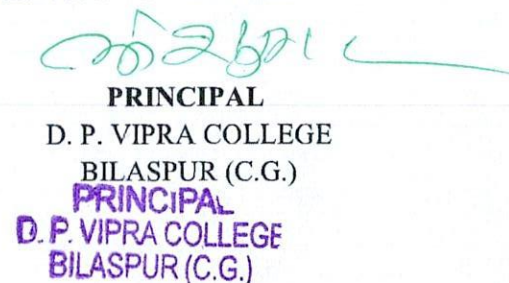 PRINCIPAL
D. P. VIPRA COLLEGE
BILASPUR (C.G.)
PRINCIPAL
D. P. VIPRA COLLEGE
BILASPUR (C.G.)